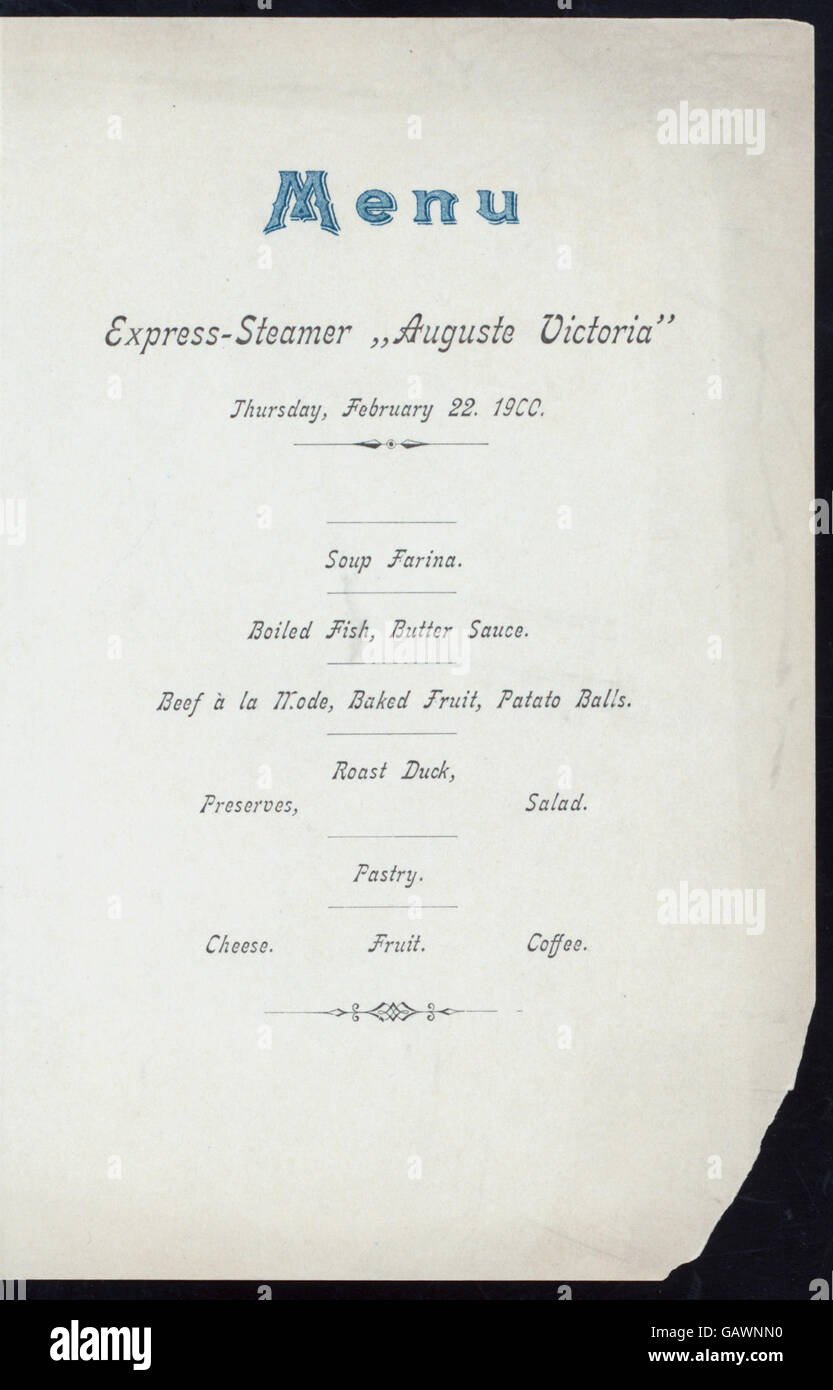 Menu
Express-Steamer „Auguste Victoria”
Thursday, February 22. 1900.
Soup Farina.
Boiled Fish, Butter Sauce.
Beef à la Mode, Baked Fruit, Patato Balls.
Roast Duck,
Preserves, Salad.
Pastry.
Cheese. Fruit. Coffee.
alamy
alamy
a alamy
Image ID: GAWNN0
www.alamy.com